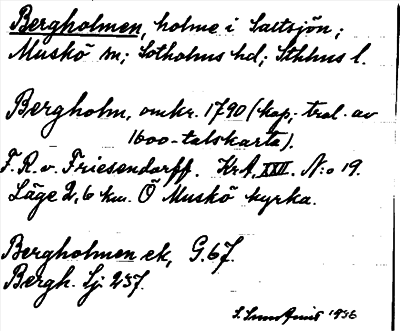 Bergholmen, holme i Saltsjön;
Muskö sn; Sotholms hd; Sthlms l.
Bergholm, omkr. 1790 (kop. trol. av
1600-talskarta).
F. R. v. Friesendorff. KrA. XXII. N:o 19.
Läge 2,6 km. Ö Muskö kyrka.
Bergholmen ek, G.67.
Bergh. Sj. 237.
1936